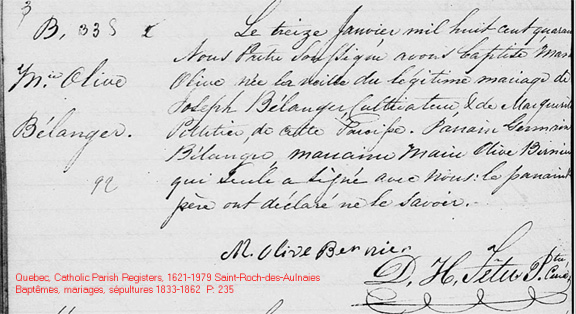 3
B. 335
Mie Olive
Bélanger.
92
Le treize Janvier mil huit cent quaran
Nous Prêtre soussigné avons baptisé Marie
Olive née la veille du légitime mariage de
Joseph Bélanger, Cultivateur & de Marguerite
Pelletier, de cette Paroisse. Parain Germain
Bélanger, maraine Marie Olive Bernier
qui seule a signé avec nous: le parain et
père ont déclaré ne le savoir.
M. Olive Bernier
D. H. Têtu Ptre
Curé
Quebec, Catholic Parish Registers, 1621-1979 Saint-Roch-des-Aulnaies
Baptêmes, mariages, sépultures 1833-1862 P: 235